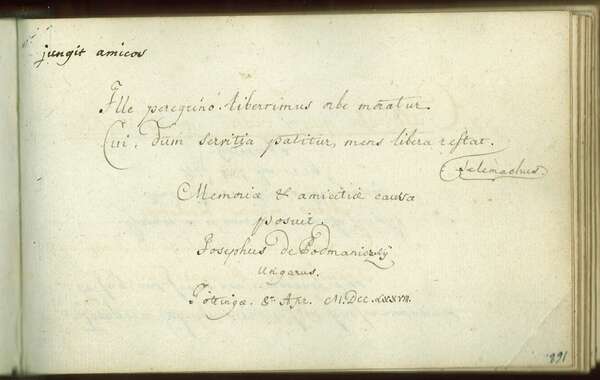 jungit amicos
Ille peregrino liberrimus orbe moratur.
Cui, dum servitia patitur, mens libera restat.
Telemachus.
Memoriæ & amicitiæ causa
posuit
Josephus de Podmaniczky
Ungarus.
Göttingæ. 8. Apr. M.DCC.LXXVIII.
891